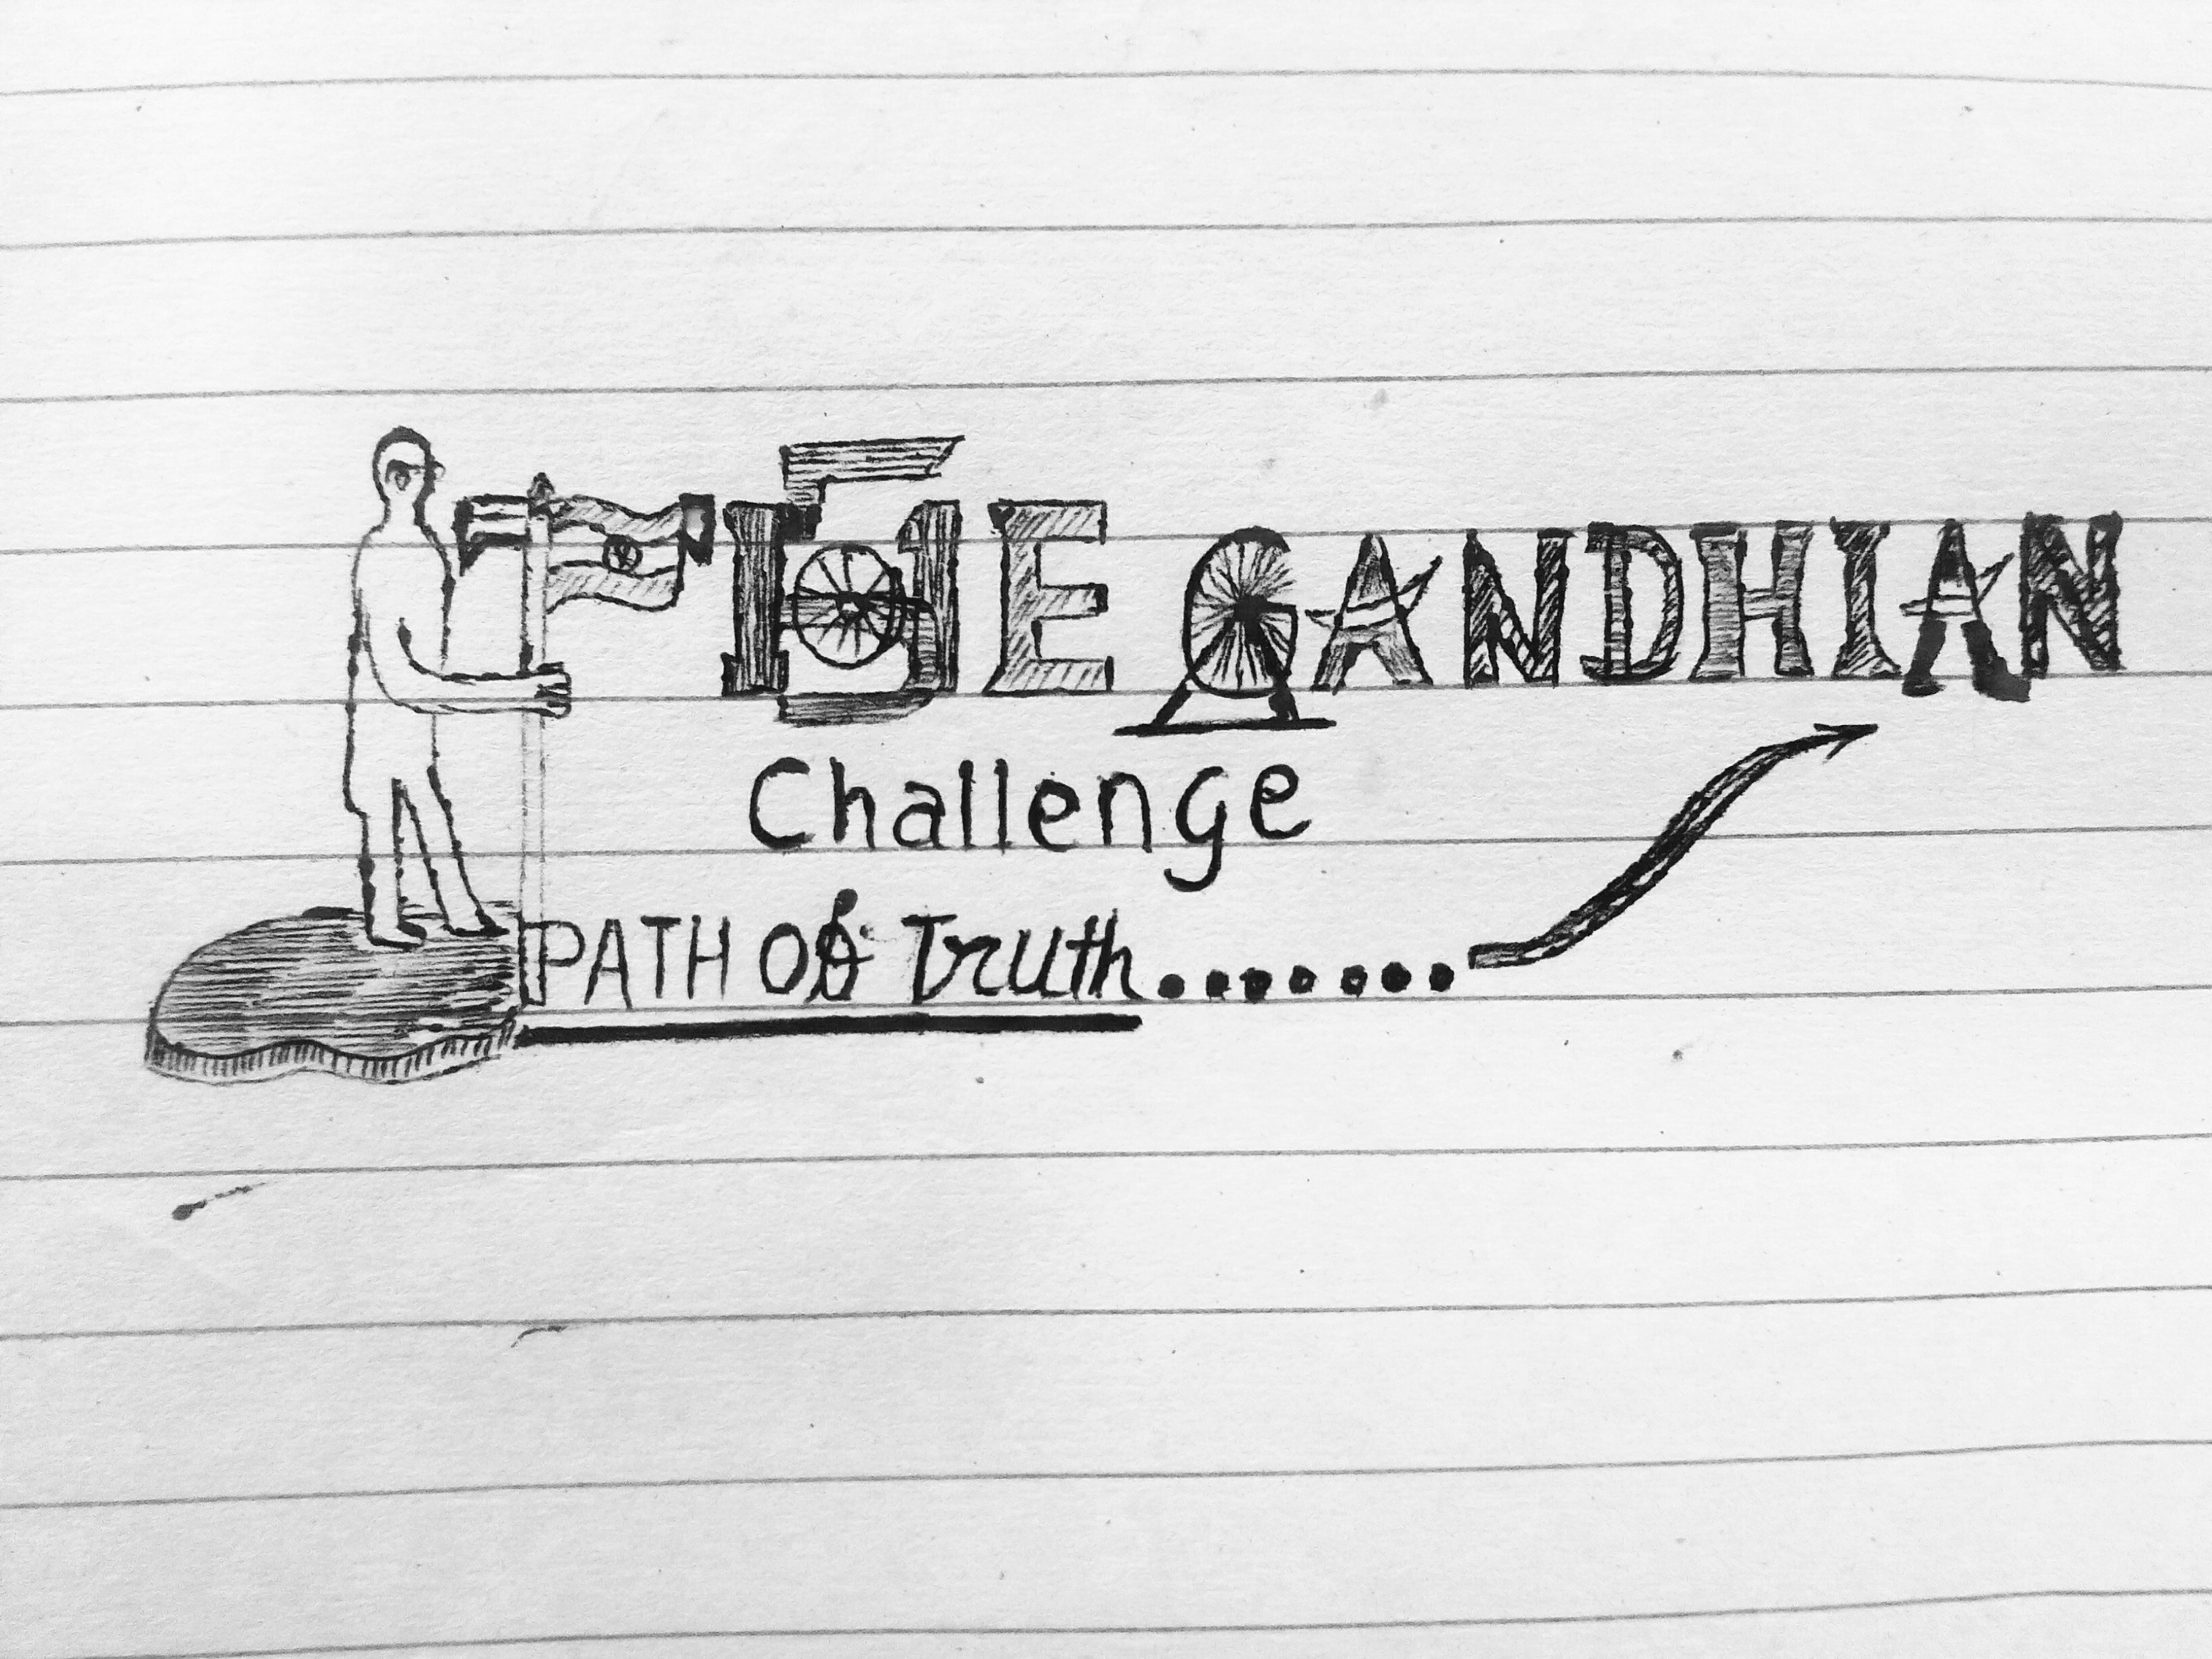 THE GANDHIAN
Challenge
PATH Of Truth........